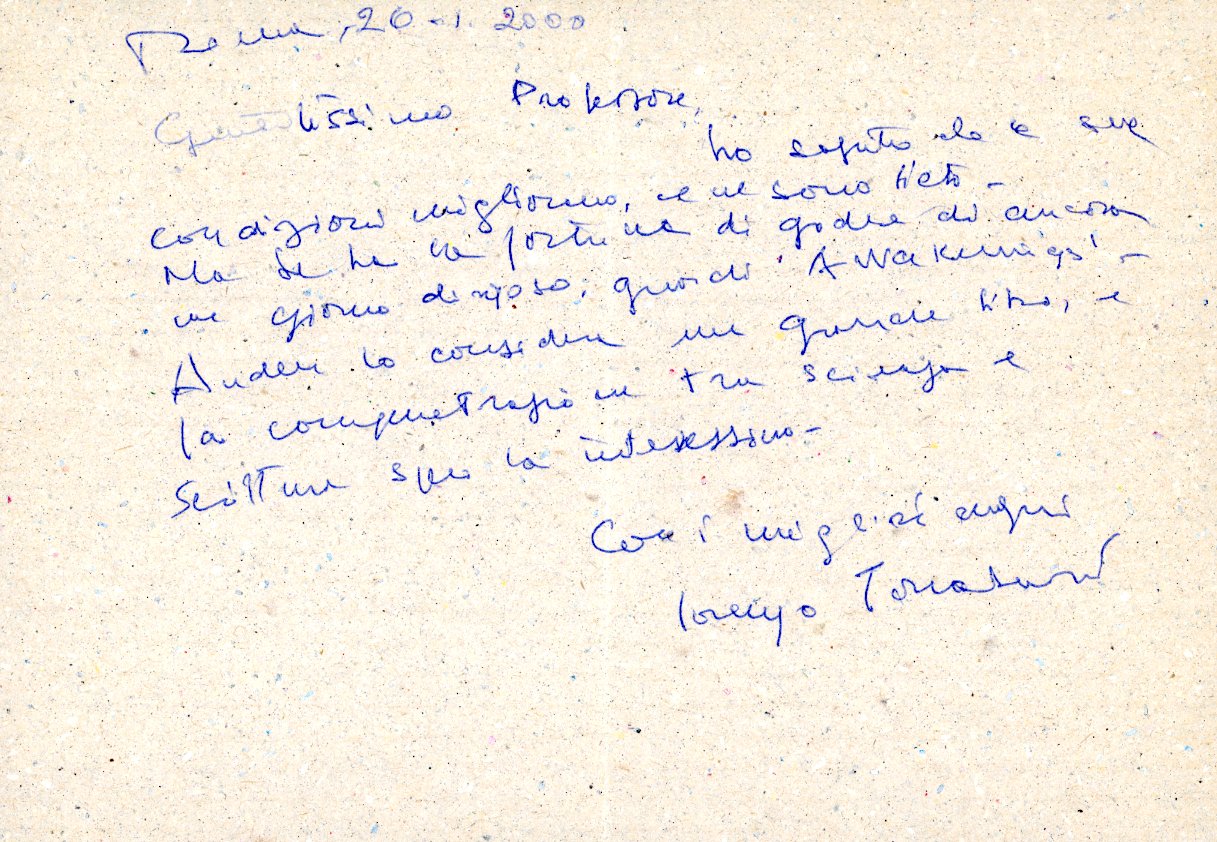 Roma, 20-1.2000
Gentilissimo Professore,
ho saputo che le sue
condizioni migliorano, e ne sono lieto -
Ma se ha la fortuna di godere di ancora
un giorno di riposo, guardi 'Awakenings' -
Auden lo considera un grande libro, e
la compenetrazione tra scienza e
scrittura spero la interessino -
Con i migliori auguri
Lorenzo